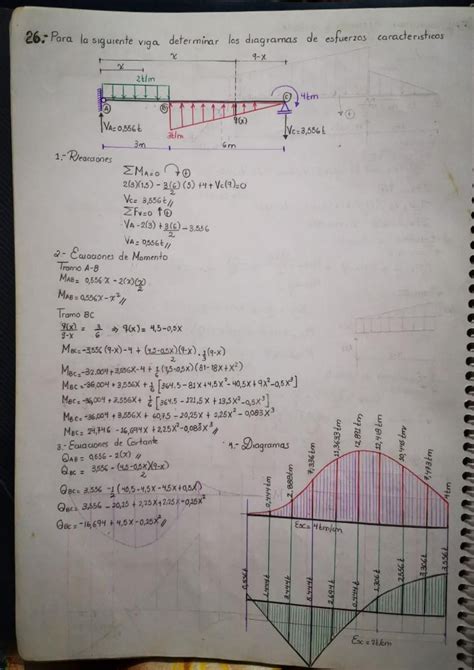 26.- Para la siguiente viga determinar los diagramas de esfuerzos característicos
x
x 9-x
2t/m
4tm
A B C
q(x)
VA=0,556t
3t/m
VC=3,556t
3m 6m
1.- Reacciones
ΣMA=0 ⊕
2(3)(1,5) - 3(6)/2 (5) +4+VC(9)=0
VC= 3,556t//
ΣFV=0 ↑⊕
VA-2(3)+ 3(6)/2 -3,556
VA= 0,556t//
2.- Ecuaciones de Momento
Tramo A-B
MAB= 0,556x - 2(x)(x)/2
MAB=0,556x-x²//
Tramo BC
q(x)/9-x = 3/6 ⇒ q(x)= 4,5-0,5x
MBC=-3,556(9-x)-4 + (4,5-0,5x)(9-x)/2 · 1/3(9-x)
MBC=-32,004+3,556x-4+ 1/6(4,5-0,5x)(81-18x+x²)
MBC=-36,004+3,556x+ 1/6[364.5-81x+4,5x²-40,5x+9x²-0,5x³]
MBC=-36,004+3,556x+ 1/6[364.5-121,5x+13,5x²-0,5x³]
MBC=-36,004+3,556x+60,75-20,25x+2,25x²-0,083x³
MBC= 24,746-16,694x+2,25x²-0,083x³//
3.- Ecuaciones de Cortante
QAB= 0,556-2(x)//
QBC= 3,556 - (4,5-0,5x)(9-x)/2
QBC= 3,556 - 1/2(40,5-4,5x-4,5x+0,5x²)
QBC= 3,556-20,25+2,25x+2,25x-0,25x²
QBC=-16,694+4,5x-0,25x²//
4.- Diagramas
0,444tm
2,888tm
7,336tm
12,448tm
4tm
Esc=4tm/cm
0,556t
1,444t
3,444t
5,444t
2,694t
0,444t
1,306t
2,556t
3,306t
3,556t
Esc=2t/cm